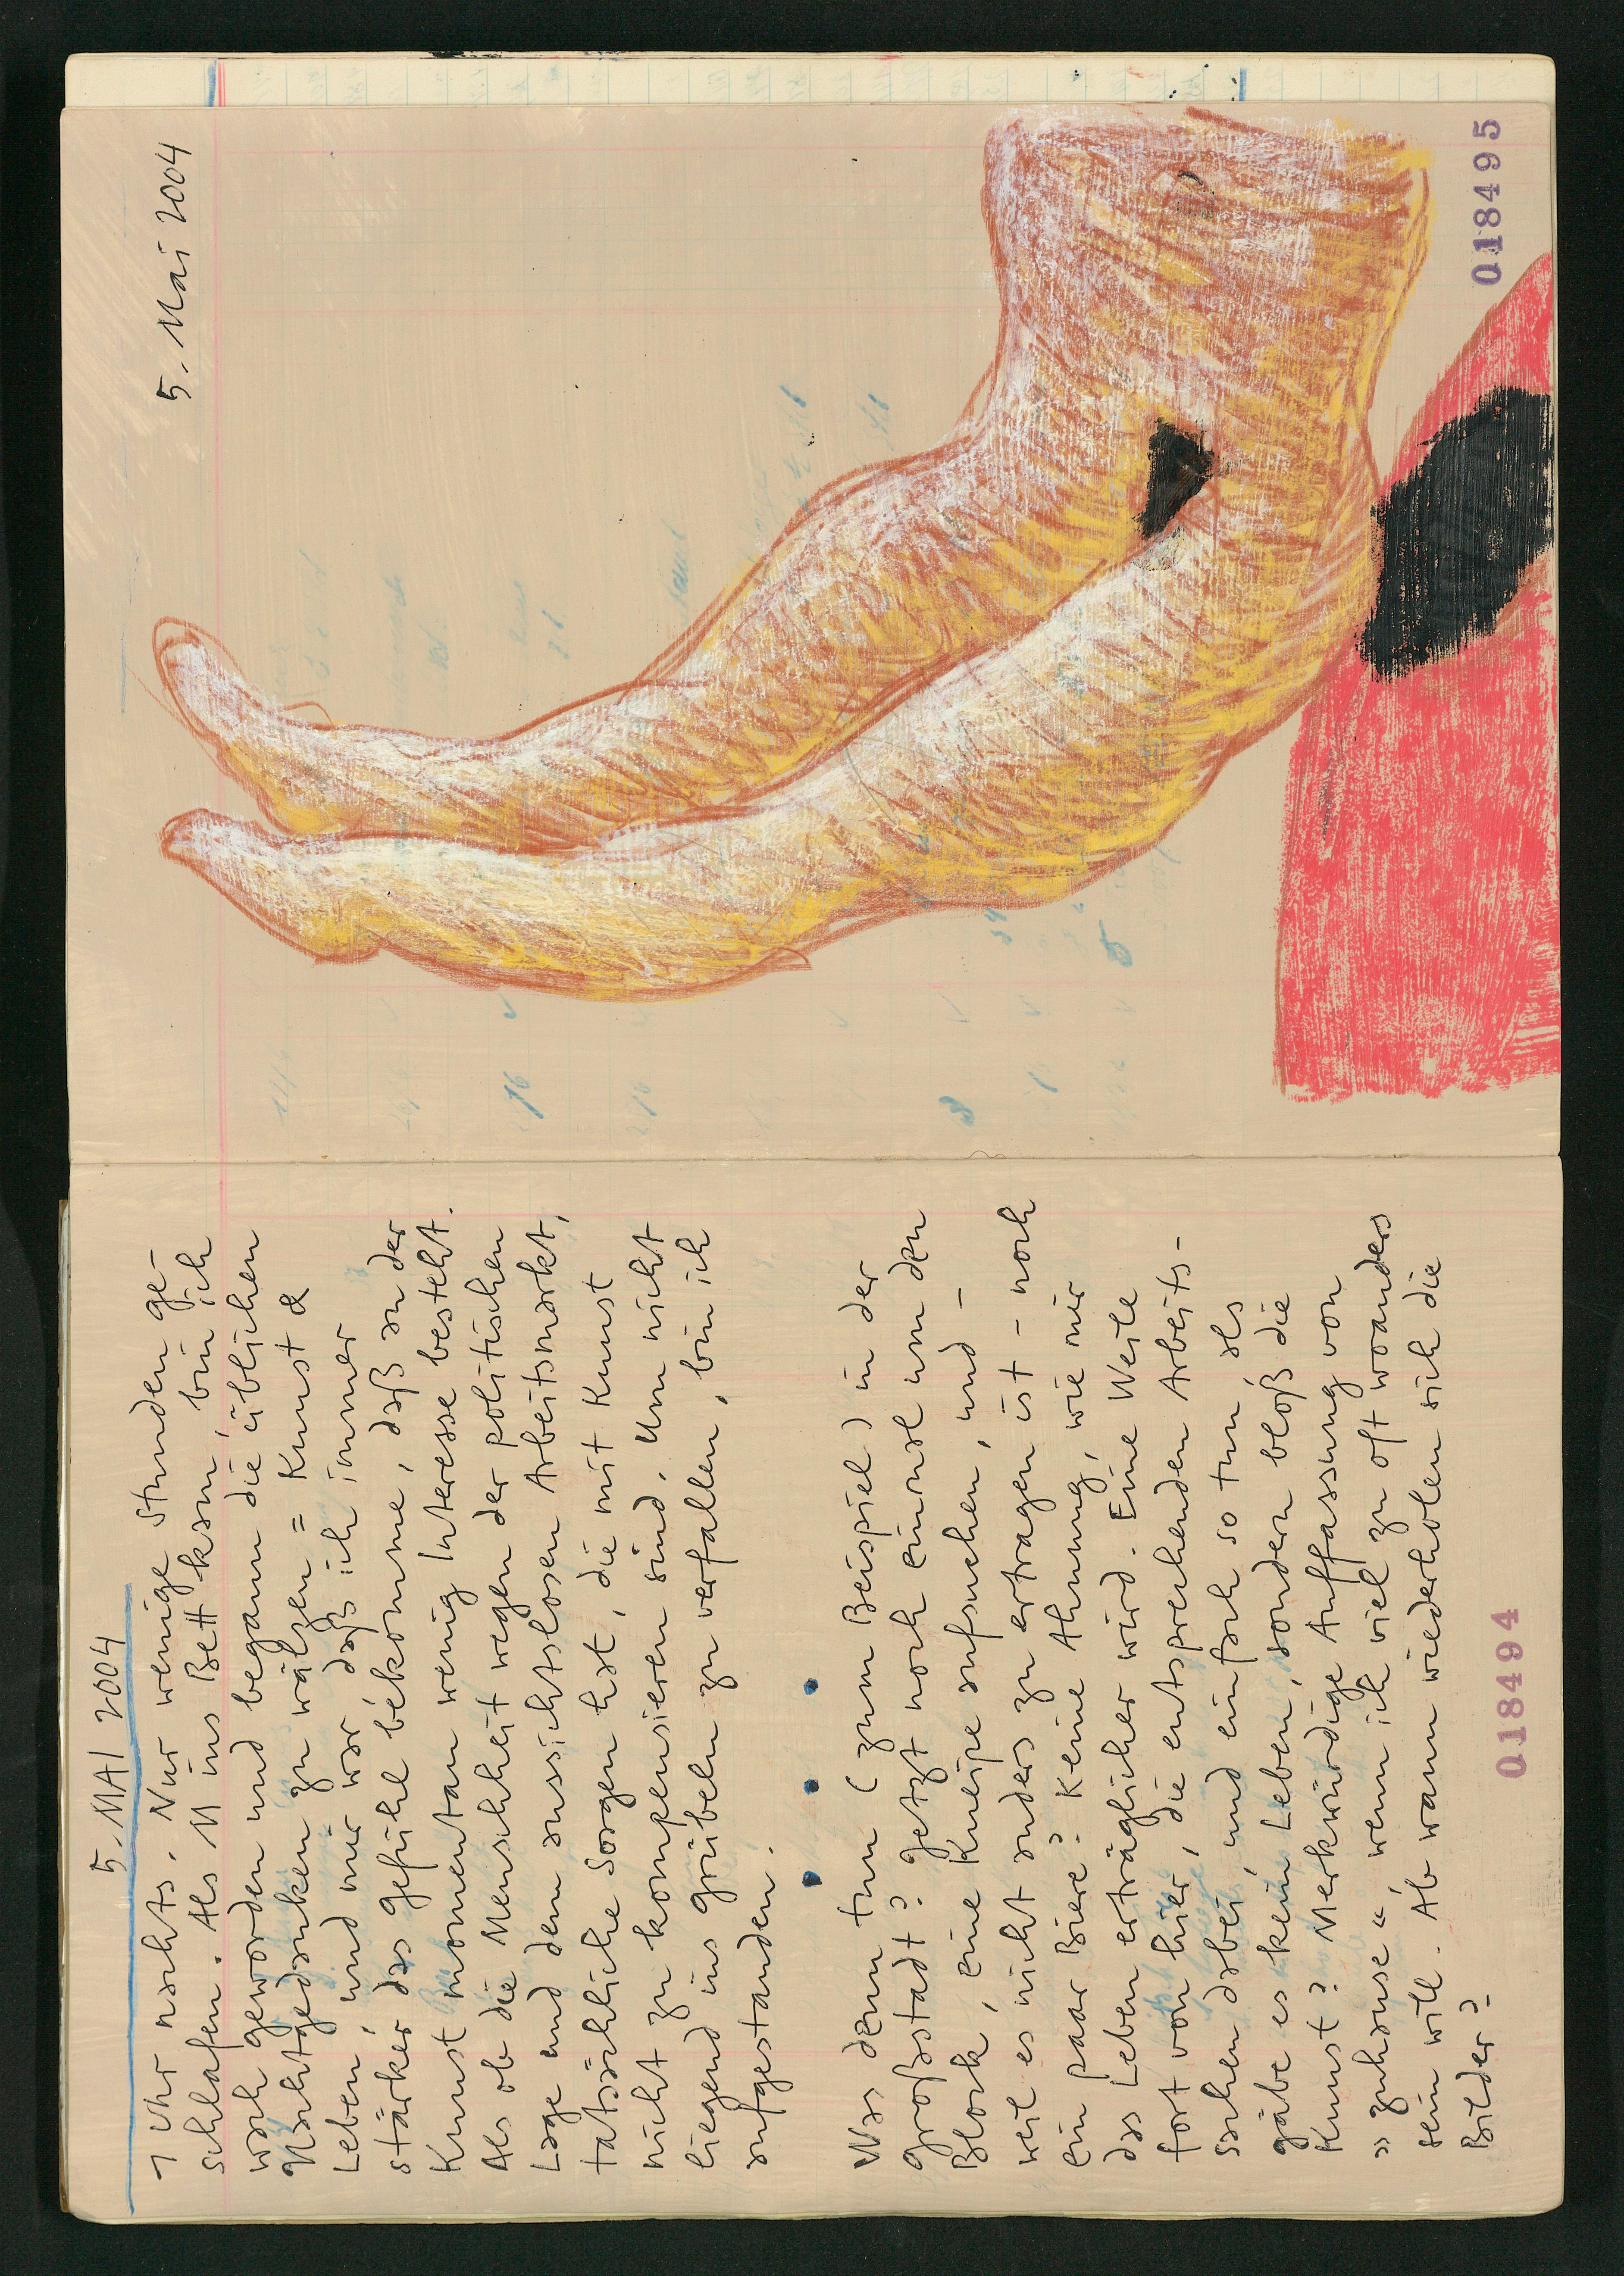 5. MAI 2004
1 Uhr nachts. Nur wenige Stunden ge-
schlafen. Als M ins Bett kam, bin ich
wach geworden und begann die üblichen
Nachtgedanken zu wälzen = Kunst &
Leben, und mir war, daß ich immer
stärker das Gefühl bekomme, daß an der
Kunst momentan wenig Interesse besteht.
Als ob die Menschheit wegen der politischen
Lage und dem aussichtslosen Arbeitsmarkt,
tatsächliche Sorgen hat, die mit Kunst
nicht zu kompensieren sind. Um nicht
liegend ins Grübeln zu verfallen, bin ich
aufgestanden.
• • •
Was denn tun (zum Beispiel) in der
Großstadt? Jetzt noch einmal um den
Block, eine Kneipe aufsuchen, und –
weil es nicht anders zu ertragen ist – noch
ein paar Biere? Keine Ahnung, wie mir
das Leben erträglicher wird. Eine Weile
fort von hier, die entsprechenden Arbeits-
sachen dabei, und einfach so tun, als
gäbe es kein Leben, sondern bloß die
Kunst? Merkwürdige Auffassung von
»zuhause«, wenn ich viel zu oft woanders
sein will. Ab wann wiederholen sich die
Bilder?
018494
5. Mai 2004
018495